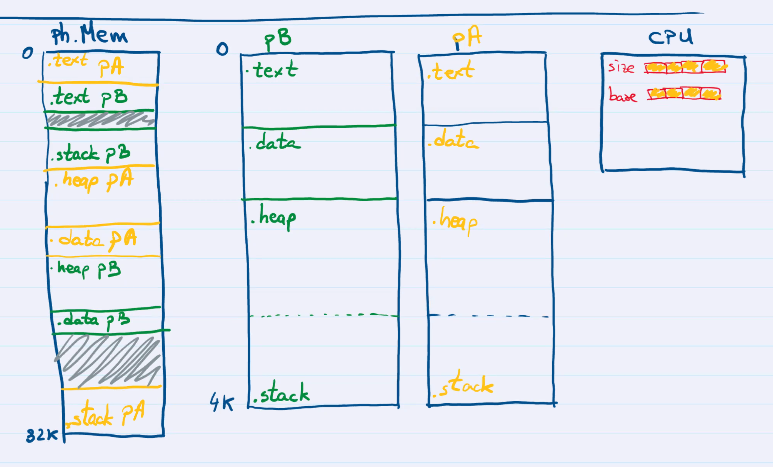 Ph.Mem
0
.text pA
.text pB
.stack pB
.heap pA
.data pA
.heap pB
.data pB
.stack pA
32K
0
pB
.text
.data
.heap
.stack
4K
pA
.text
.data
.heap
.stack
CPU
size
base